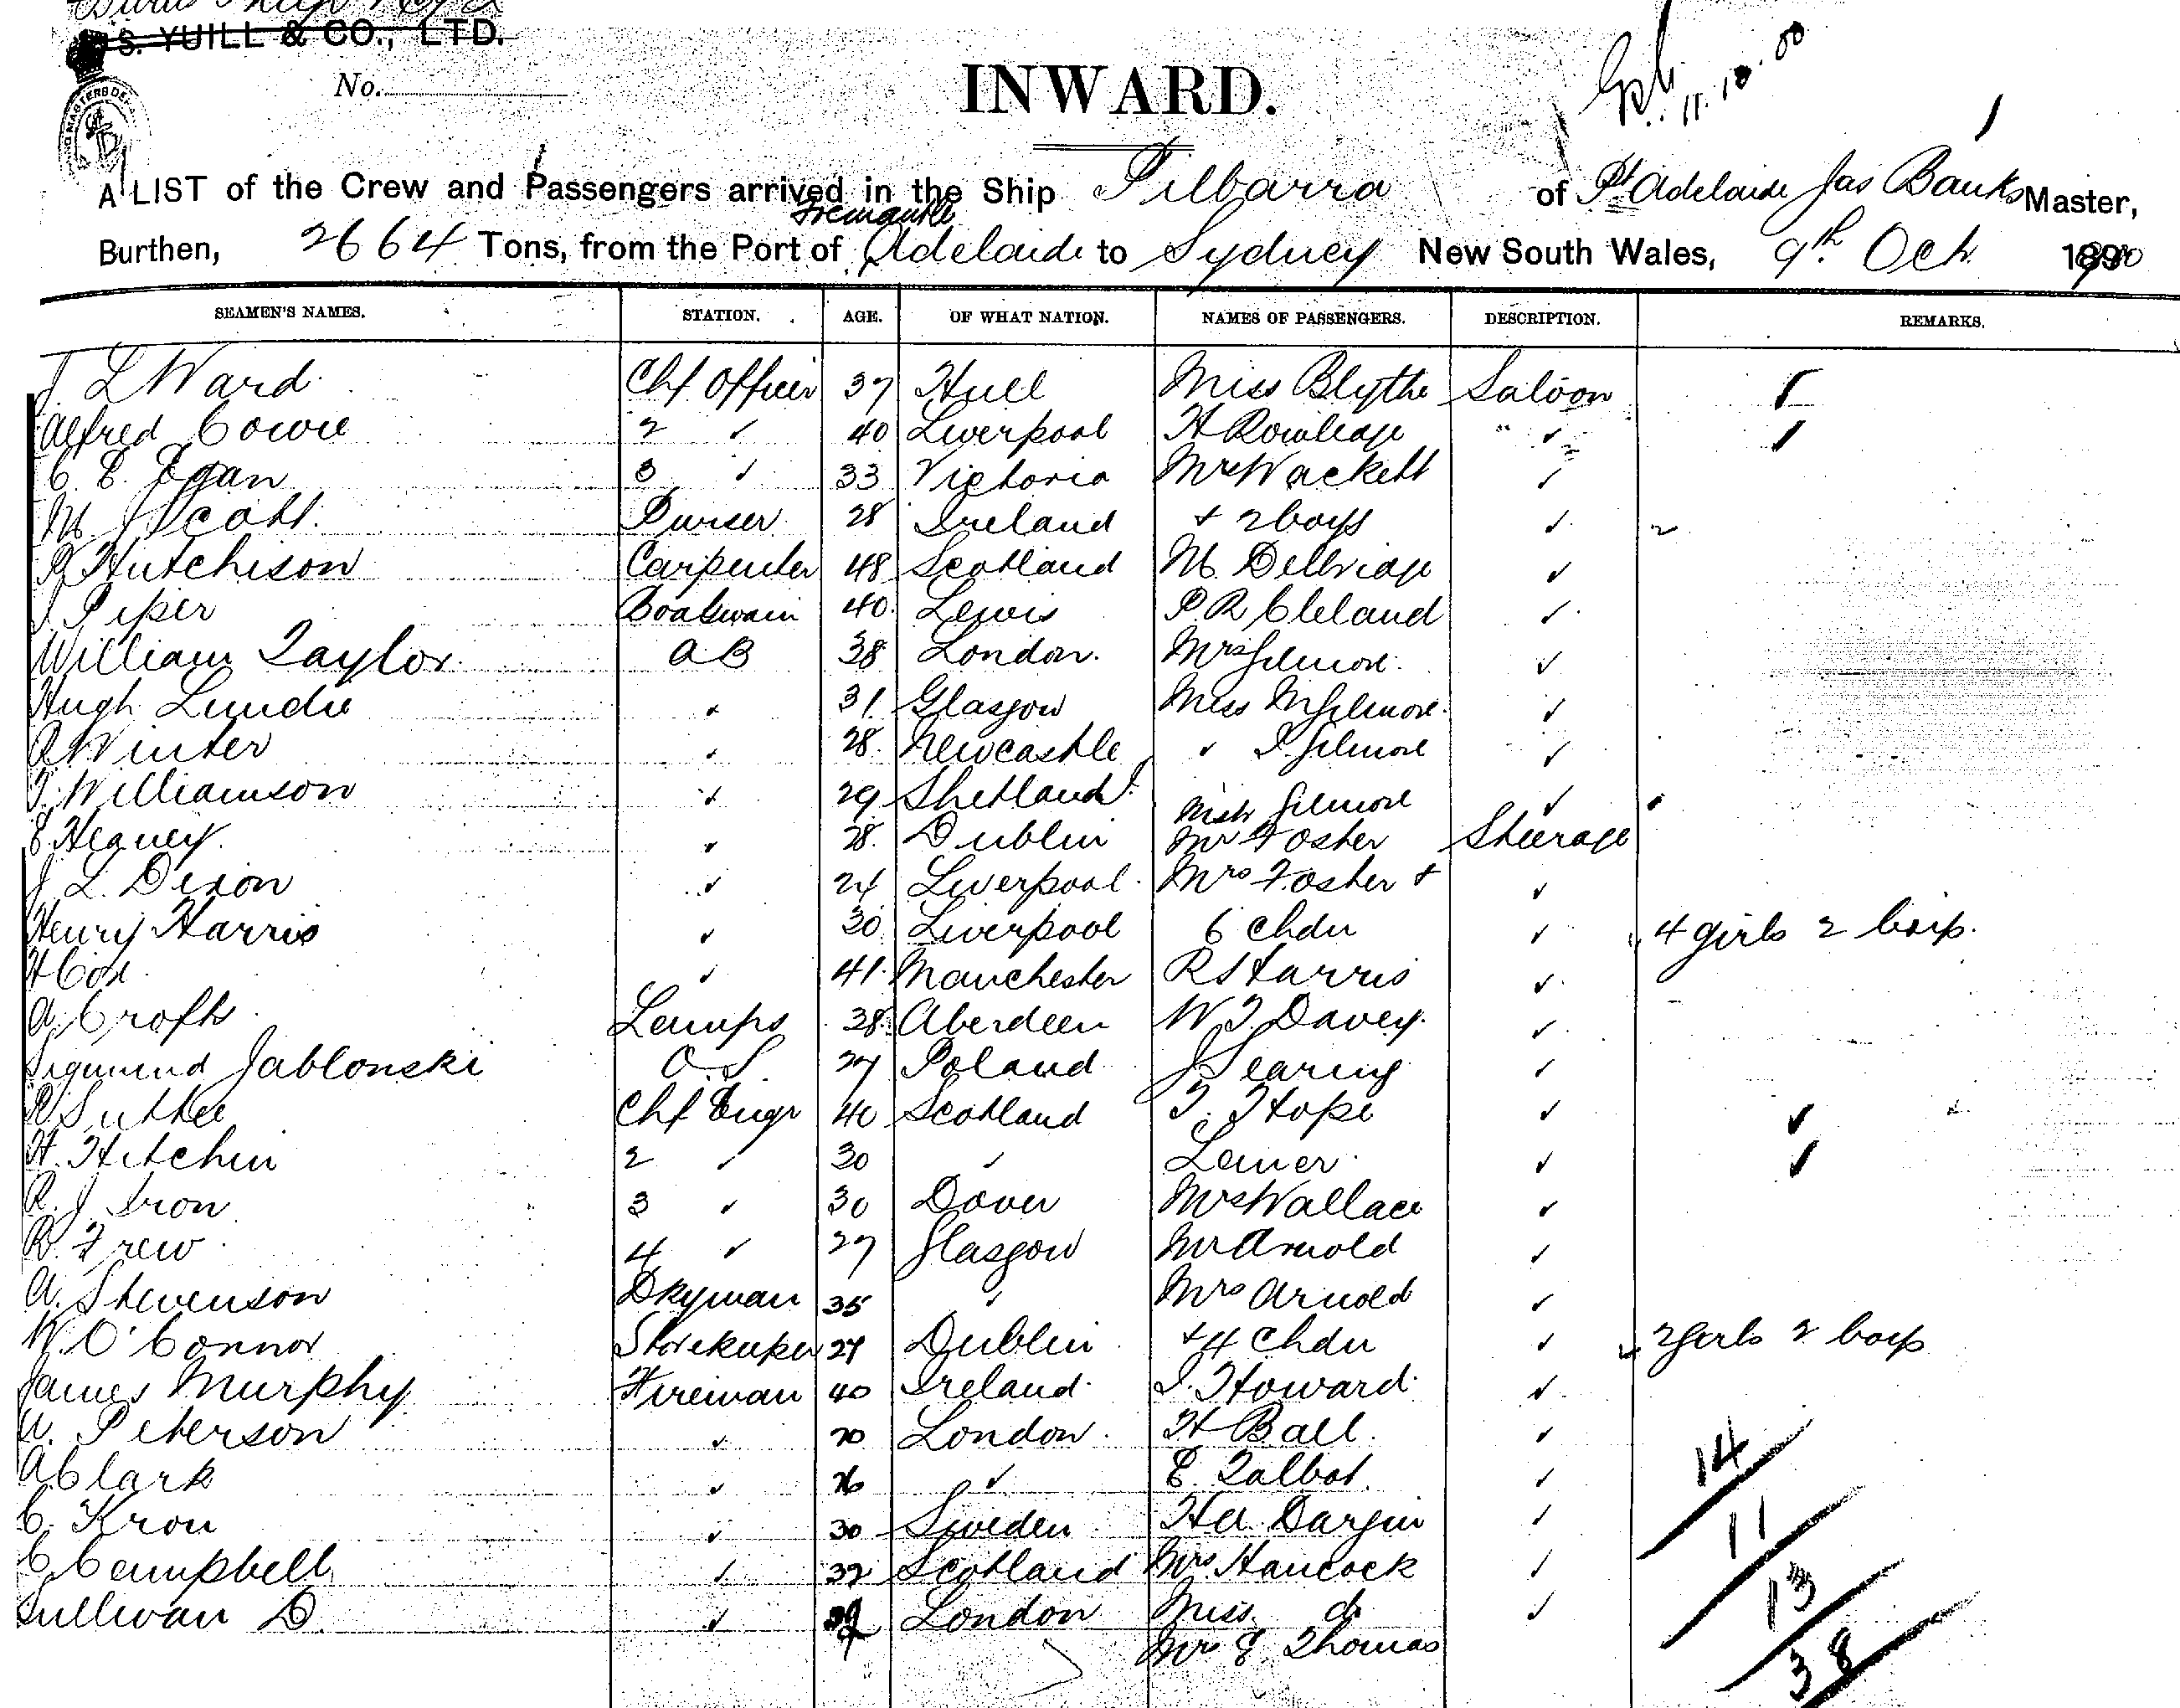 S. YUILL & CO., LTD.
No.
INWARD.
11.10.00
A LIST of the Crew and Passengers arrived in the Ship Pilbarra of Pt Adelaide Jas Banks Master,
Fremantle
Burthen, 2664 Tons, from the Port of Adelaide to Sydney New South Wales, 9th Oct. 1900
SEAMEN'S NAMES. STATION. AGE. OF WHAT NATION. NAMES OF PASSENGERS. DESCRIPTION. REMARKS.
J L Ward Chf Officer 37 Hull Miss Blythe Saloon
Alfred Cowie 2 40 Liverpool H Rowleage "
C. E. Egan 3 33 Victoria Mrs Wackett
M J Scott. Purser 28 Ireland + 2 boys 2
P Hutchison Carpenter 48 Scotland M Delbriage
J. Piper Boatswain 40. Lewis P R Cleland
William Taylor AB 38 London. Mrs Gilmore.
Hugh Lundie 31 Glasgow Miss M Gilmore.
A Winter 28. Newcastle I Gilmore
T. Williamson 29 Shetland I. Mstr Gilmore
E Heaney. 28. Dublin Mr Foster Steerage
J. L. Dixon 24 Liverpool Mrs Foster +
Henry Harris 30 Liverpool 6 Chdn 4 girls 2 boys.
H Cox 41. Manchester R Harris
A. Crofts Lamps 38. Aberdeen W J Davey.
Sigmund Jablonski O.S. 27 Poland J Searing
P Suttee Chf Engr 40 Scotland T. Hope
H. Hitchin 2 30 Leiner
R. J. Iron 3 30 Dover Mrs Wallace
R. Frew 4 27 Glasgow Mr Arnold
A. Stevenson Dkyman 35 Mrs Arnold
W. O'Connor Storekeeper 27 Dublin + 4 Chdn 2 girls 2 boys
James Murphy Fireman 40 Ireland. J. Howard.
W. Peterson 20 London. H Ball.
A Clark 26 E. Talbot.
C. Kron 30 Sweden H A Dargin
C Campbell 32 Scotland Mrs Hancock
Sullivan D. London Miss do
Mrs E. Thomas
14
11
13
38